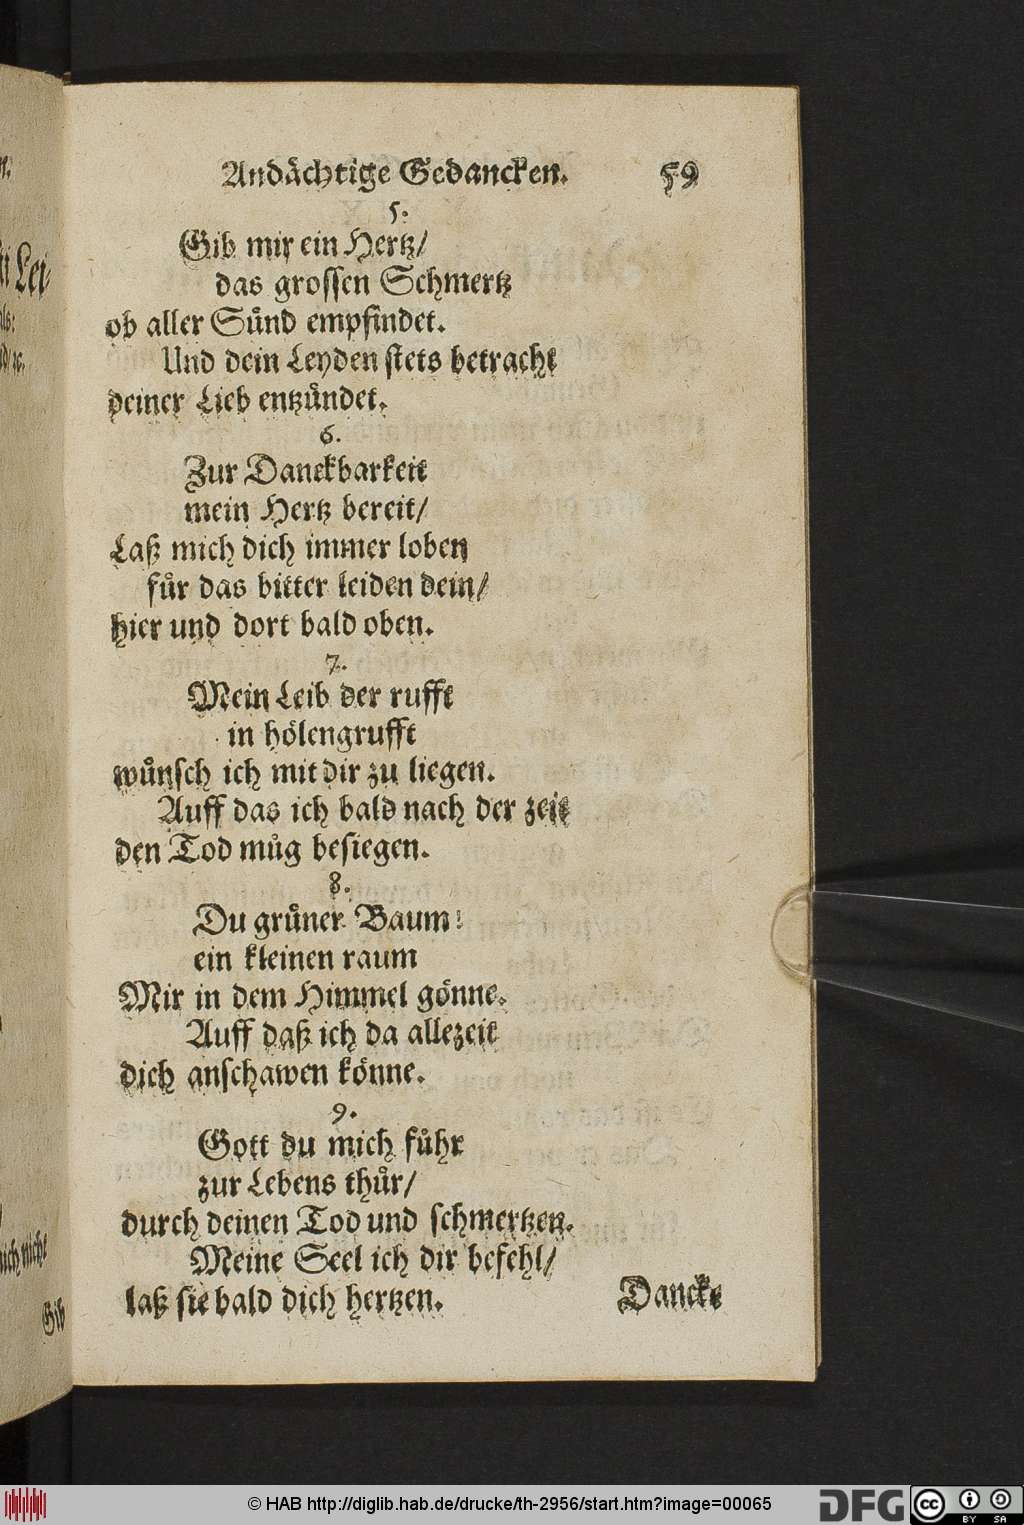 Andächtige Gedancken. 59
5.
Gib mir ein Hertz/
das grossen Schmertz
ob aller Sünd empfindet.
Und dein Leyden stets betracht
deiner Lieb entzündet.
6.
Zur Danckbarkeit
mein Hertz bereit/
Laß mich dich immer loben
für das bitter leiden dein/
hier und dort bald oben.
7.
Mein Leib der rufft
in hölengrufft
wünsch ich mit dir zu liegen.
Auff das ich bald nach der zeit
den Tod müg besiegen.
8.
Du grüner Baum!
ein kleinen raum
Mir in dem Himmel gönne.
Auff daß ich da allezeit
dich anschawen könne.
9.
Gott du mich führ
zur Lebens thür/
durch deinen Tod und schmertzen.
Meine Seel ich dir befehl/
laß sie bald dich hertzen.
Dancke
Lei-
nicht
Gib
© HAB http://diglib.hab.de/drucke/th-2956/start.htm?image=00065
DFG
cc BY SA